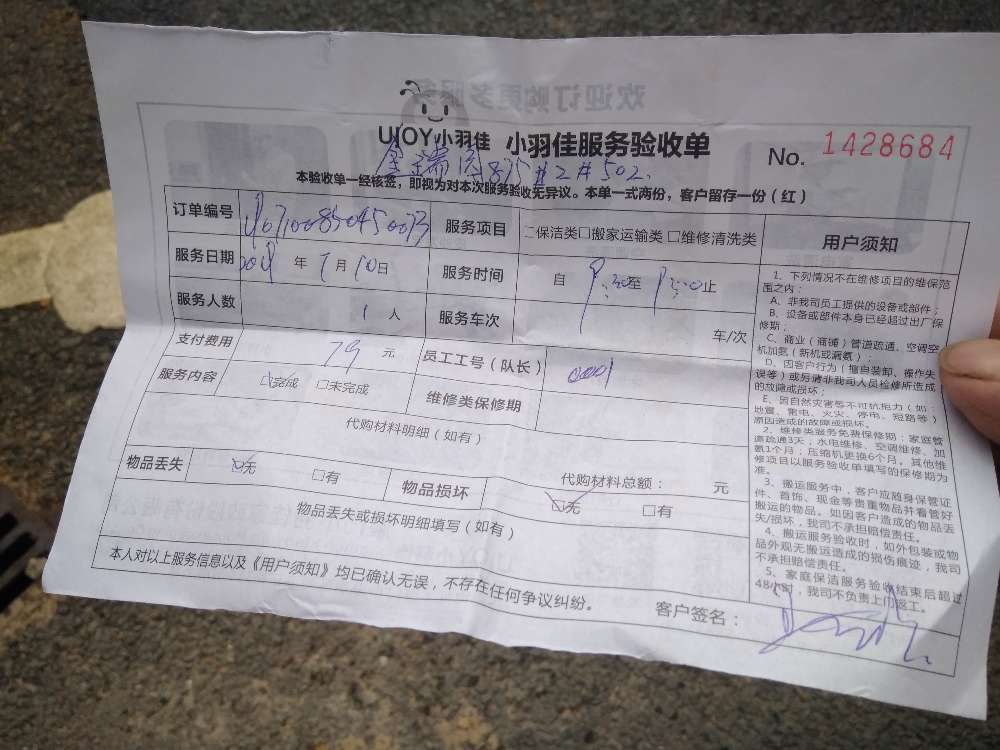 UJOY小羽佳 小羽佳服务验收单 No. 1428684
金瑞园875#2#502
本验收单一经核签，即视为对本次服务验收无异议。本单一式两份，客户留存一份（红）
订单编号 服务项目 □保洁类□搬家运输类□维修清洗类 用户须知
服务日期 年 月10日 服务时间 自 至 止
服务人数 1人 服务车次 车/次
支付费用 79元 员工工号（队长） 0001
服务内容 ☑完成 □未完成 维修类保修期
代购材料明细（如有）
代购材料总额： 元
物品丢失 ☑无 □有 物品损坏 ☑无 □有
物品丢失或损坏明细填写（如有）
本人对以上服务信息以及《用户须知》均已确认无误，不存在任何争议纠纷。 客户签名：
1、下列情况不在维修项目的维保范
围之内：
A、非我司员工提供的设备或部件；
B、设备或部件本身已经超过出厂保
修期；
C、商业（商铺）管道疏通、空调空
机加氨（新机或漏氨）；
D、因客户行为（擅自装卸、操作失
误等）或另请非我司人员检修所造成
的故障或损坏；
E、因自然灾害等不可抗电力（如：
地震、雷电、火灾、停电、短路等）
原因造成的故障或损坏。
2、维接类服务免费保修期：家庭管
道疏通3天；水电维修、空调维修、加
氨1个月；压缩机更换6个月。其他维
修项目以服务验收单填写的保修期为
准。
3、搬运服务中，客户应随身保管证
件、首饰、现金等贵重物品并看管好
搬运的物品。如因客户造成的物品丢
失/损坏，我司不承担赔偿责任。
4、搬运服务验收时，如外包装或物
品外观无搬运造成的损伤痕迹，我司
不承担赔偿责任。
5、家庭保洁服务验收结束后超过
48小时，我司不负责上门返工。